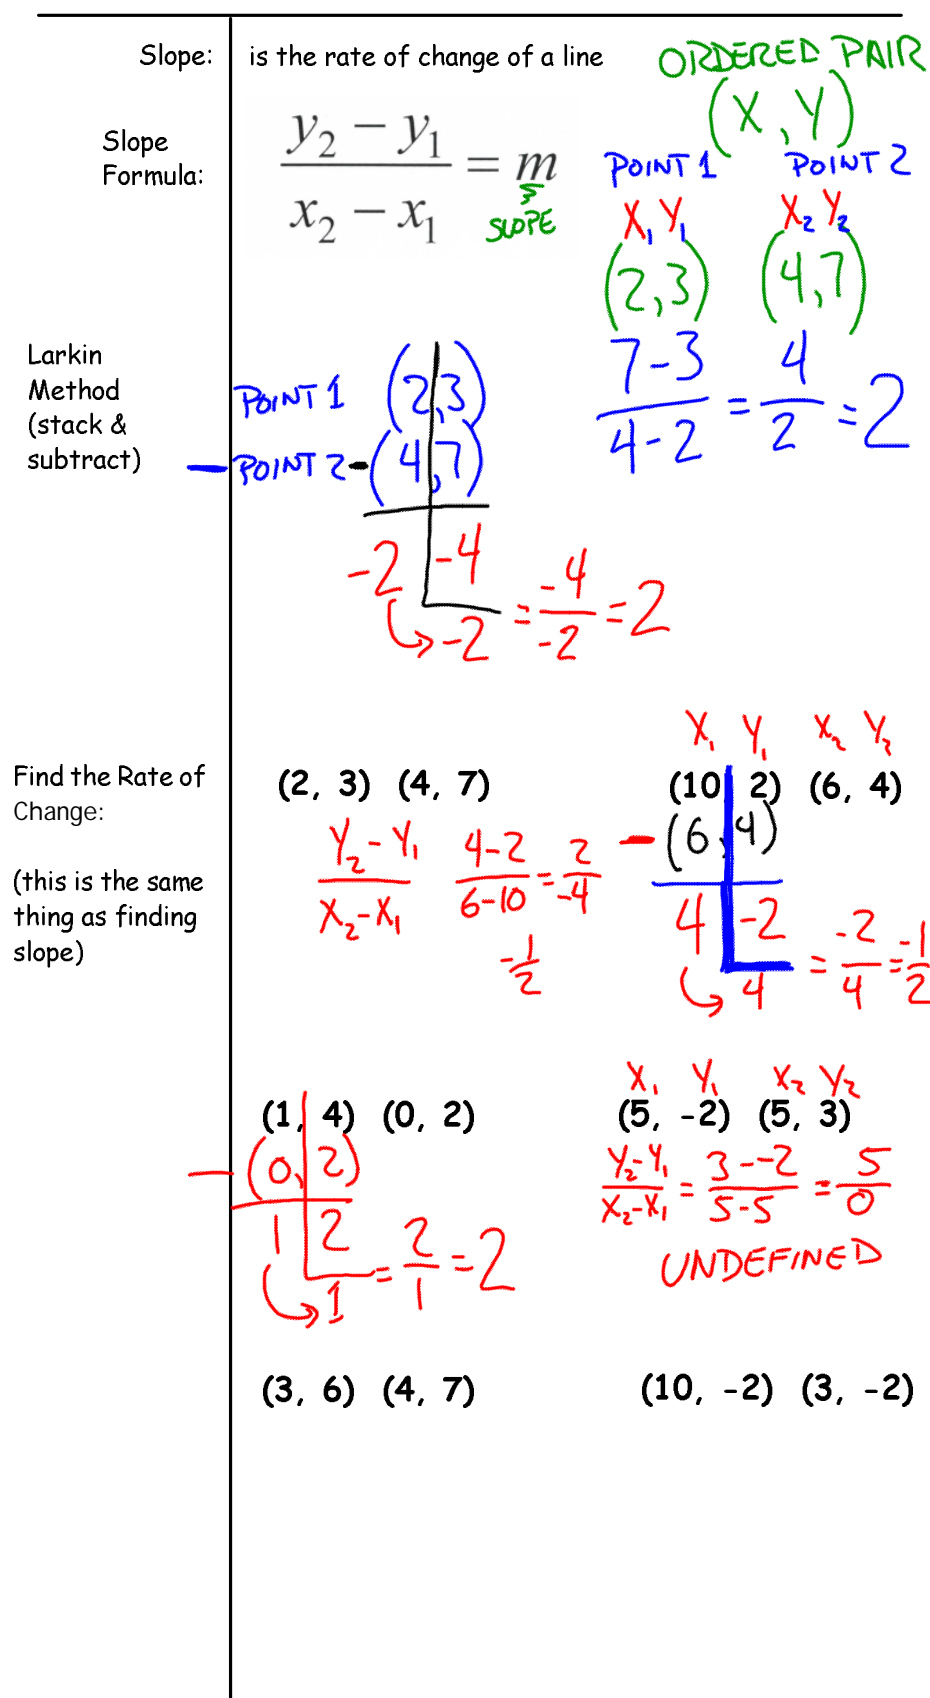 Slope: is the rate of change of a line
ORDERED PAIR
(X, Y)
Slope Formula:
y₂ − y₁ / x₂ − x₁ = m
SLOPE
POINT 1 POINT 2
X₁ Y₁ X₂ Y₂
(2,3) (4,7)
7-3 / 4-2 = 4/2 = 2
Larkin
Method
(stack &
subtract)
POINT 1 (2,3)
- POINT 2 - (4,7)
-2 -4
-2 = -4/-2 = 2
Find the Rate of
Change:
(this is the same
thing as finding
slope)
(2, 3) (4, 7)
X₁ Y₁ X₂ Y₂
(10, 2) (6, 4)
Y₂-Y₁ / X₂-X₁ 4-2 / 6-10 = 2/-4
-1/2
- (6,4)
4 -2
4 = -2/4 = -1/2
(1, 4) (0, 2)
- (0, 2)
1 2
1 = 2/1 = 2
X₁ Y₁ X₂ Y₂
(5, -2) (5, 3)
Y₂-Y₁ / X₂-X₁ = 3--2 / 5-5 = 5/0
UNDEFINED
(3, 6) (4, 7)
(10, -2) (3, -2)